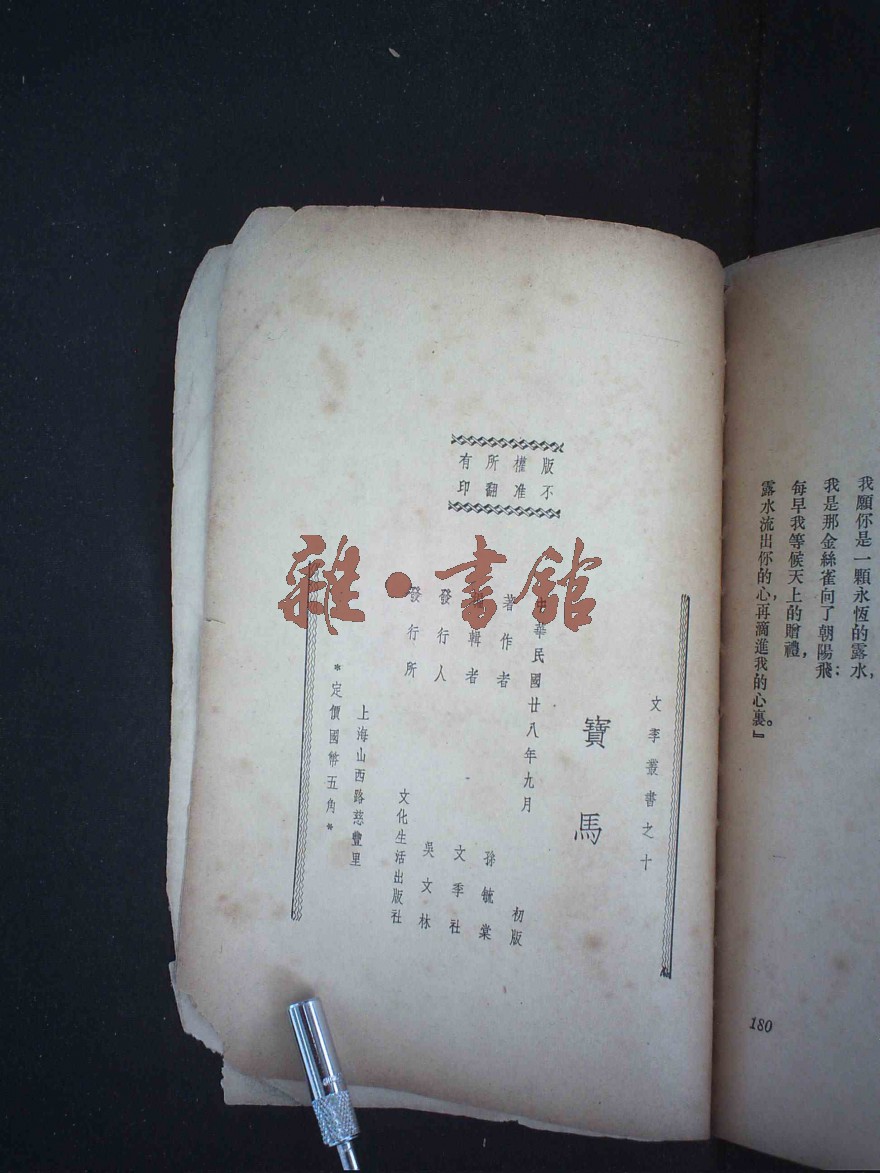 我願你是一顆永恆的露水，
我是那金絲雀向了朝陽飛；
每早我等候天上的贈禮，
露水流出你的心，再滴進我的心裏。』
180
版權所有
不准翻印
文季叢書之十
寶馬
中華民國廿八年九月初版
著作者 孫毓棠
編輯者 文季社
發行人 吳文林
發行所 文化生活出版社
上海山西路慈豐里
*定價國幣五角*
雜·書館